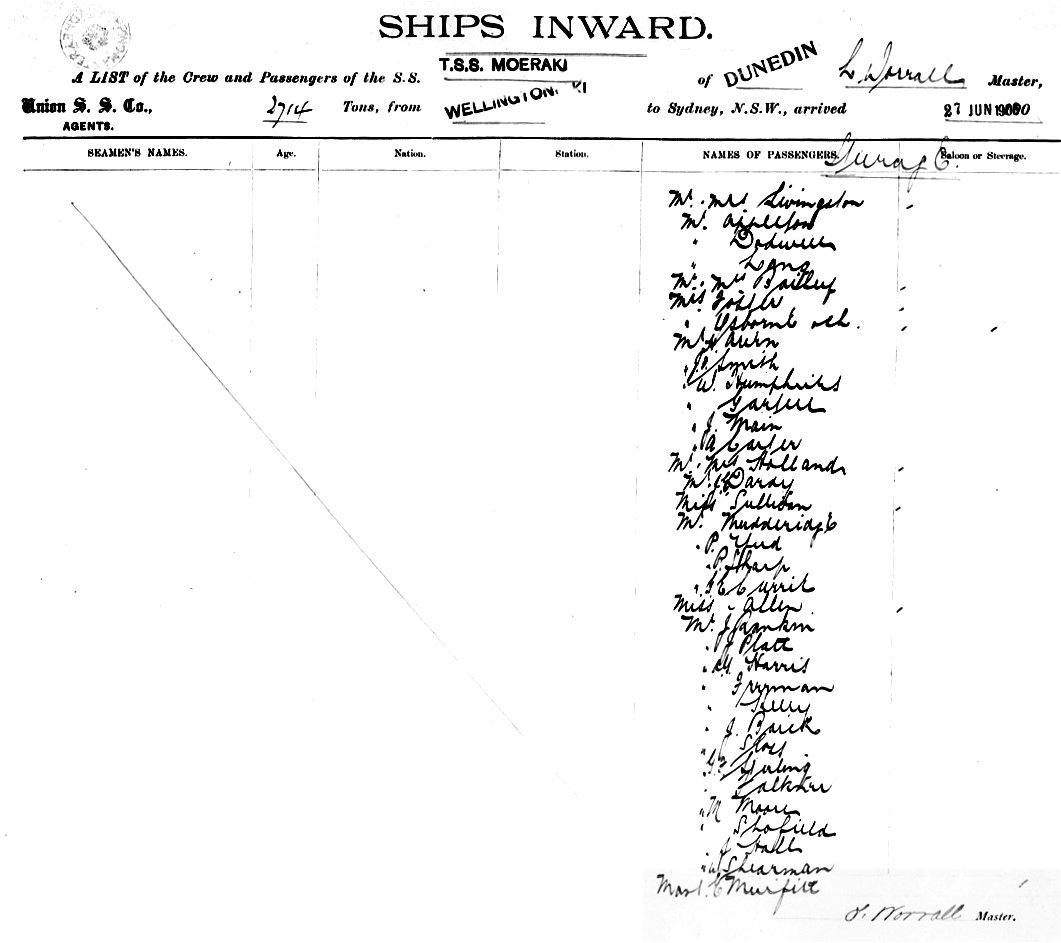 SHIPS INWARD.
A LIST of the Crew and Passengers of the S.S. T.S.S. MOERAKI of DUNEDIN L. Worrall Master,
Union S. S. Co., 2714 Tons, from WELLINGTON to Sydney, N.S.W., arrived 27 JUN 1900
AGENTS.
SEAMEN'S NAMES. Age. Nation. Station. NAMES OF PASSENGERS. Saloon or Steerage.
Mr. Mrs Livingston
Mr. Appleton
" Dodwell
" Lang
Mr. Mrs Bailley
Mrs Foster
" Osborne & ch.
Mr Hearn
" Smith
" W. Humphries
" Garfell
" J. Main
" A Carter
Mr. Mrs Holland
Mr. Daray
Miss Sullivan
Mr. Mudderidge
" P.
" P. Sharp
" Currie
Miss Allen
Mr. J Rankin
" J Platt
" Harris
" Freeman
" Kelly
" J. Barck
"
" Sperling
" Falkner
" M Moore
" Shofield
" J Hall
" W Shearman
Mast. C Murfitt
L. Worrall Master.